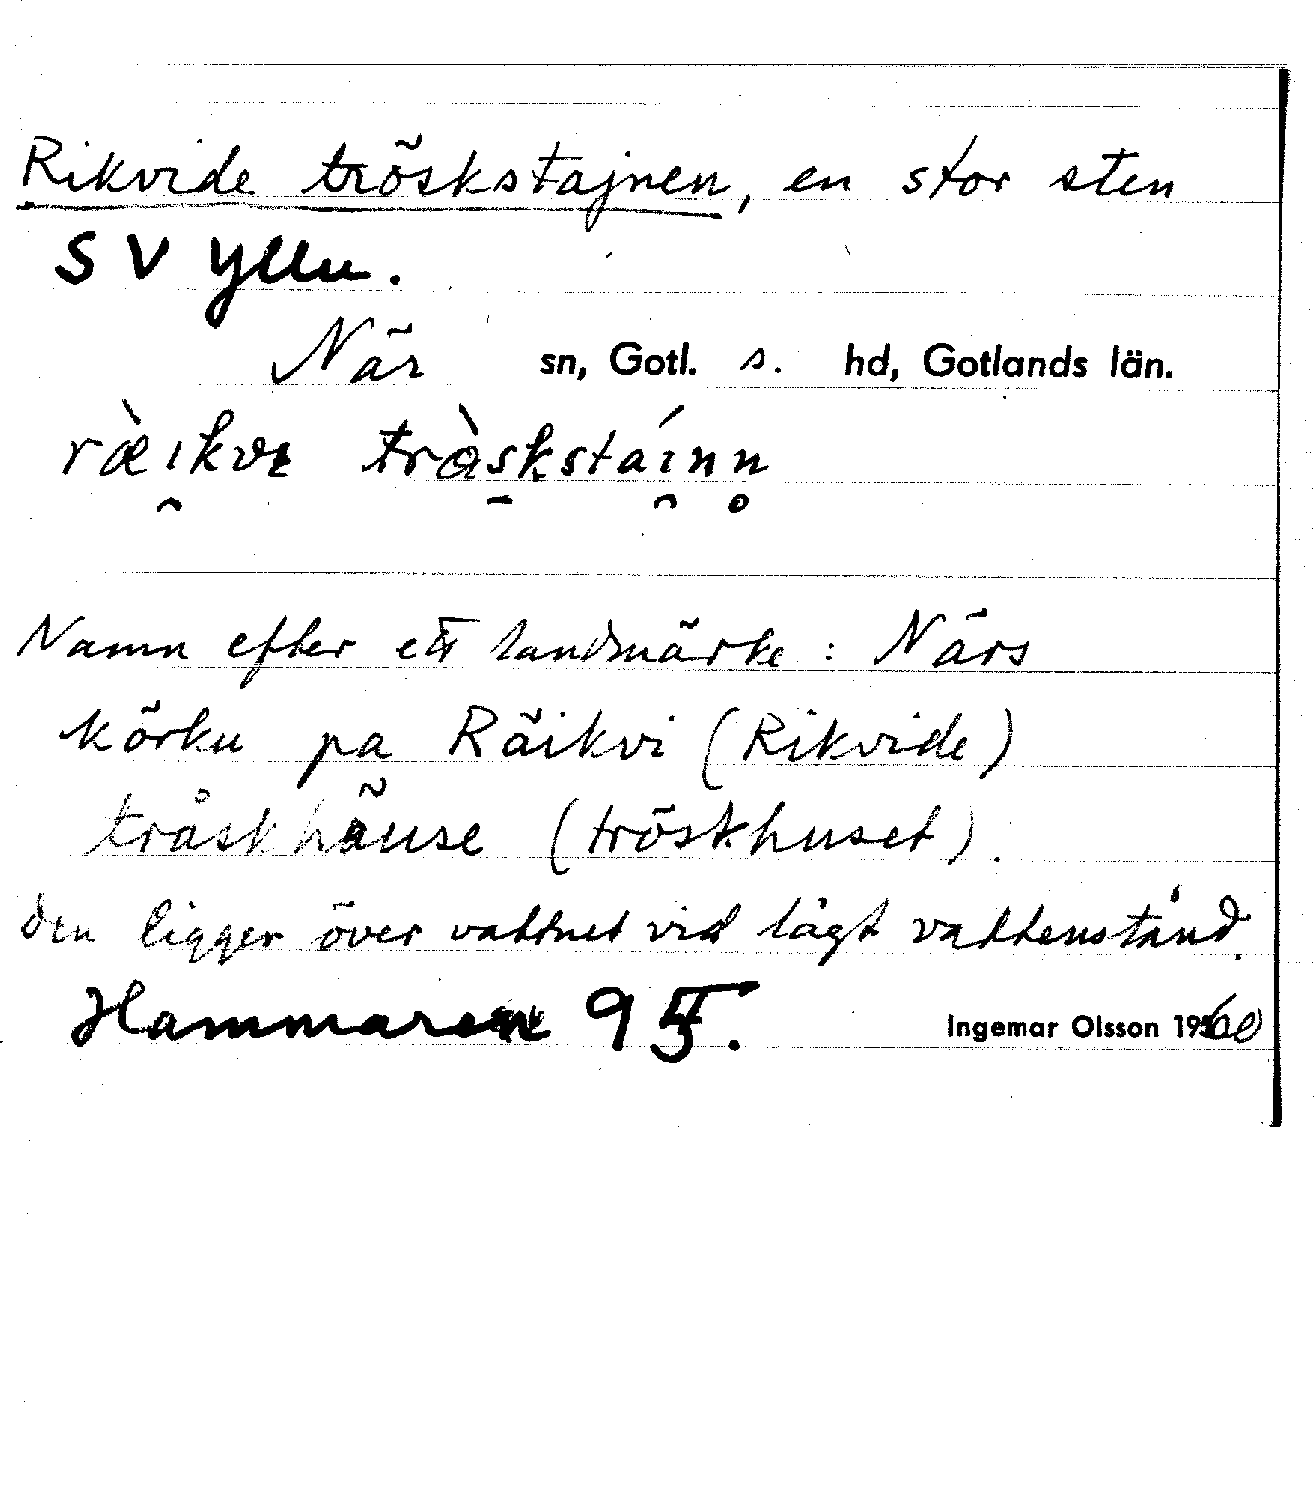 Rikvide tröskstajnen, en stor sten
SV Yllu.
När sn, Gotl. s. hd, Gotlands län.
ræ̀i̯kvɪ trȁskstái̯nn̥
Namn efter ett landmärke: Närs
körku pa Räikvi (Rikvide)
tråskhäuse (tröskhuset).
den ligger över vattnet vid lågt vattenstånd.
Hammaren 95.
Ingemar Olsson 1960